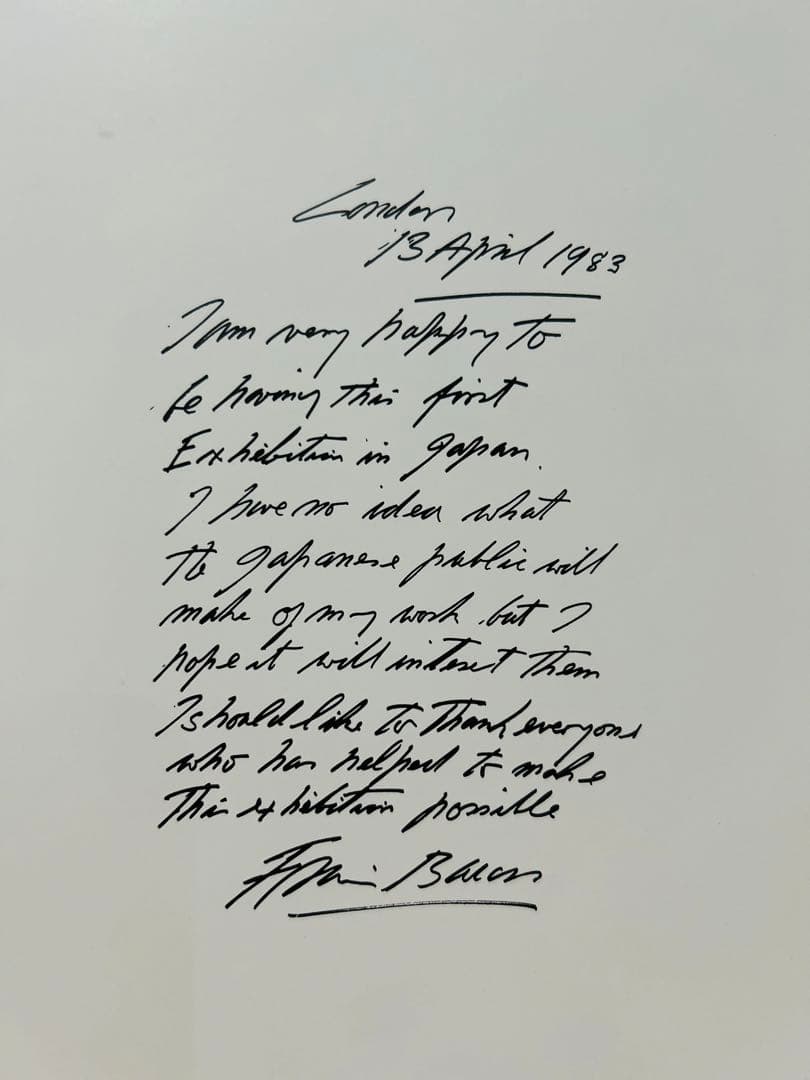 London
13 April 1983
I am very happy to
be having this first
Exhibition in Japan.
I have no idea what
the Japanese public will
make of my work but I
hope it will interest them
I should like to thank everyone
who has helped to make
this exhibition possible
Francis Bacon